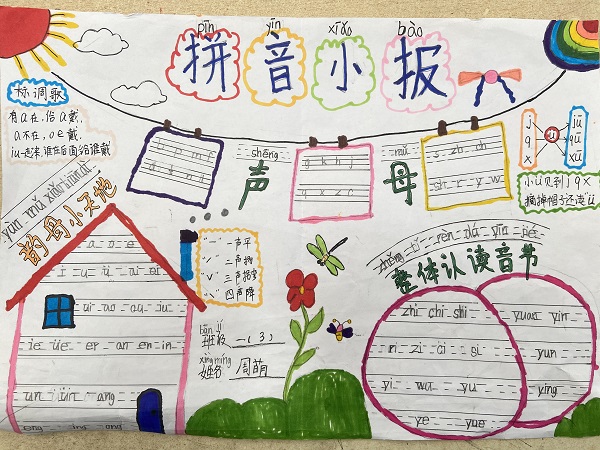 pīn yīn xiǎo bào
拼音小报
标调歌
有a在,给a戴,
a不在,o e戴.
iu一起来,谁在后面给谁戴
shēng mǔ
声母
b p m f
g k h j
q x z c
s zh ch
sh r y w
j q x
ü
jü qü xü
小ü见到j q x
摘掉帽子还读ü
yùn mǔ xiǎo tiān dì
韵母小天地
a o e
i u ü ai ei
ui ao ou iu
ie üe er an en in
un ün ang
eng ing ong
"ˉ" 一声平
"ˊ" 二声扬
"ˇ" 三声拐弯
"ˋ" 四声降
bān jí
班级 一(3)
xìng míng
姓名 周萌
zhěng tǐ rèn dú yīn jié
整体认读音书
zhi chi shi
ri zi ci si
yi wu yu
ye yue
yuan yin
yun
ying